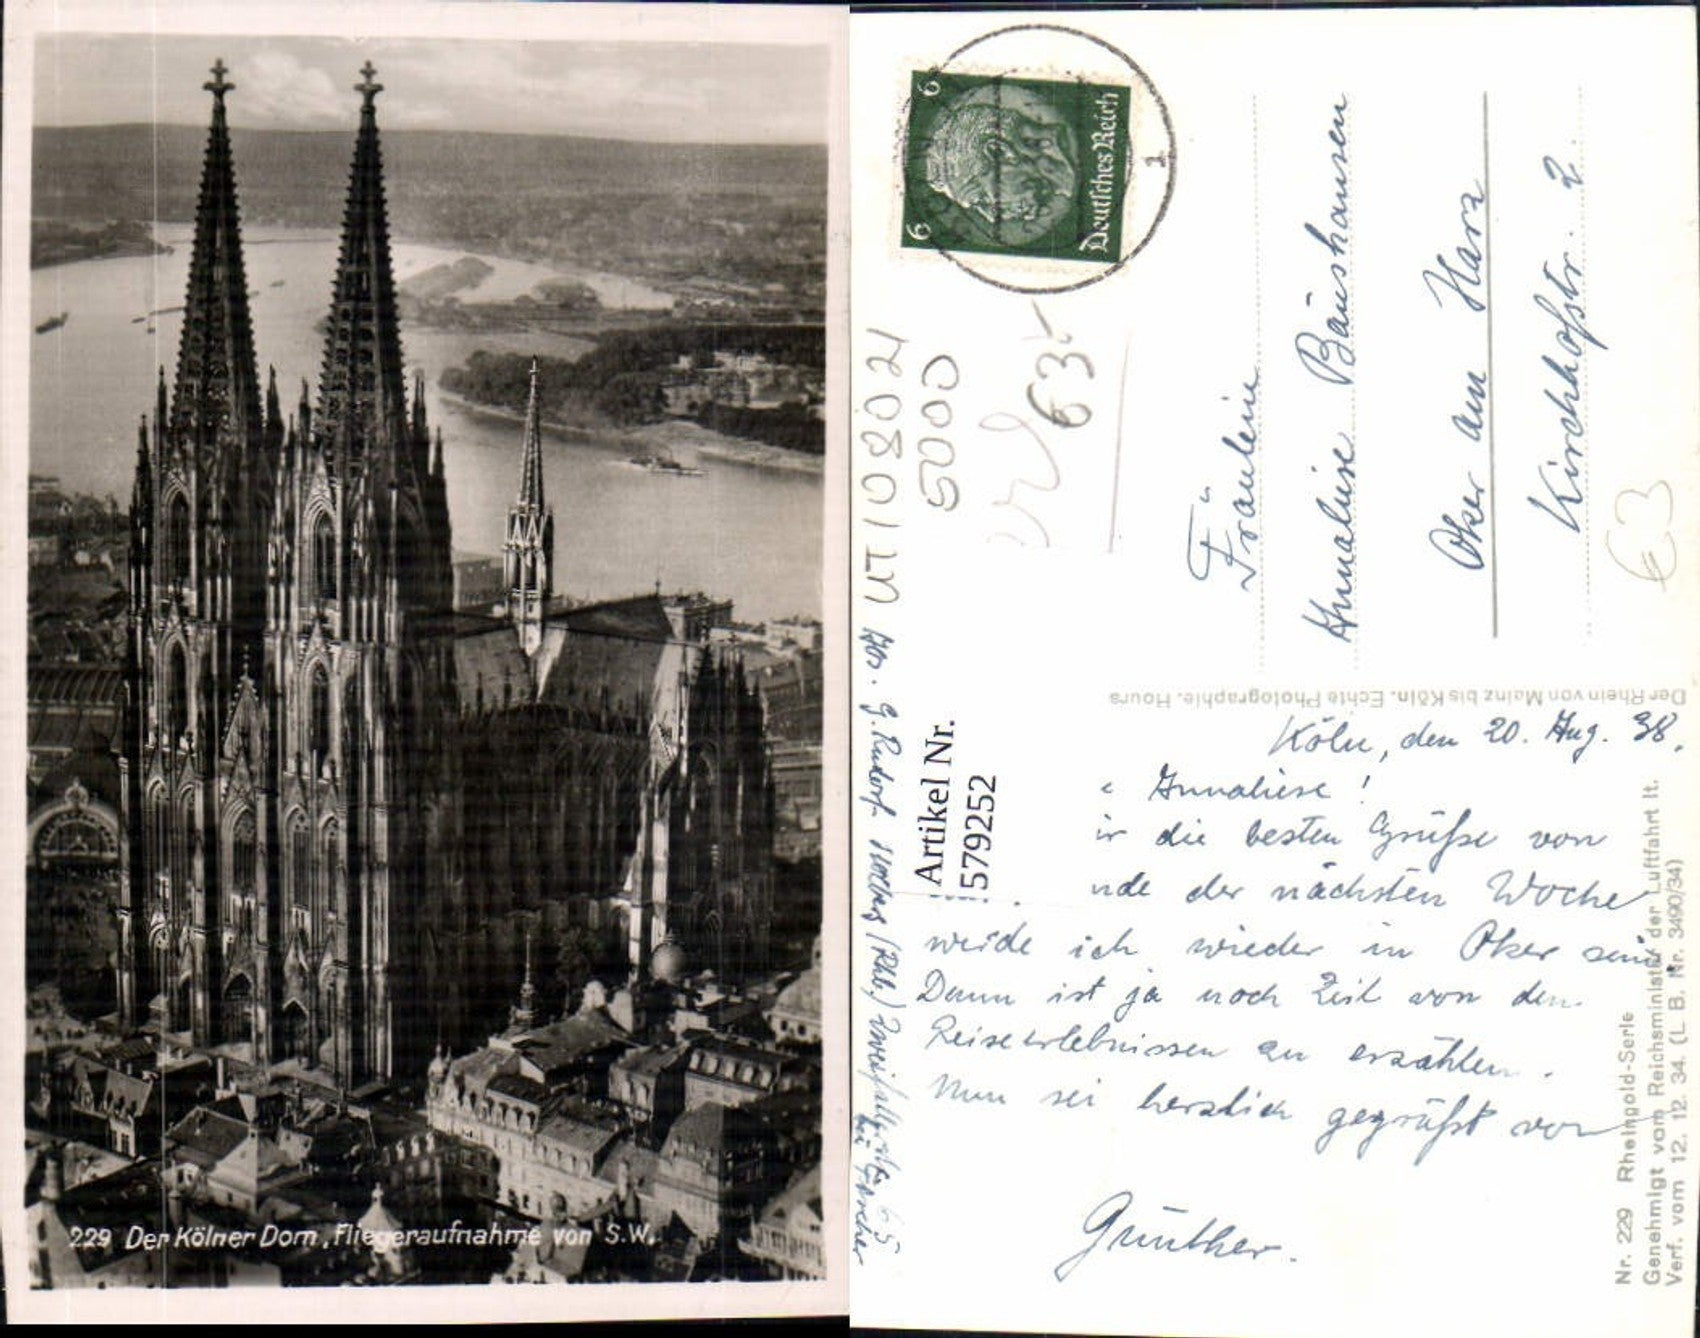 229 Der Kölner Dom, Fliegeraufnahme von S.W.
6
6
Deutsches Reich
1
UT108021
5000
63
€3
Fräulein
Annaliese Bäushausen
Oker am Harz
Kirchhofstr. 2.
Der Rhein von Mainz bis Köln. Echte Photographie. Hours
Köln, den 20. Aug. 38.
Annaliese!
ir die besten Grüße von
nde der nächsten Woche
werde ich wieder in Oker sein.
Dann ist ja noch Zeit von den
Reiseerlebnissen zu erzählen.
Nun sei herzlich gegrüßt von
Günther.
Artikel Nr.
579252
Abs. G. (Rhld.) 65
bei
Nr. 229 Rheingold-Serie
Genehmigt vom Reichsminister der Luftfahrt lt.
Verf. vom 12. 12. 34. (L. B. Nr. 3490/34)